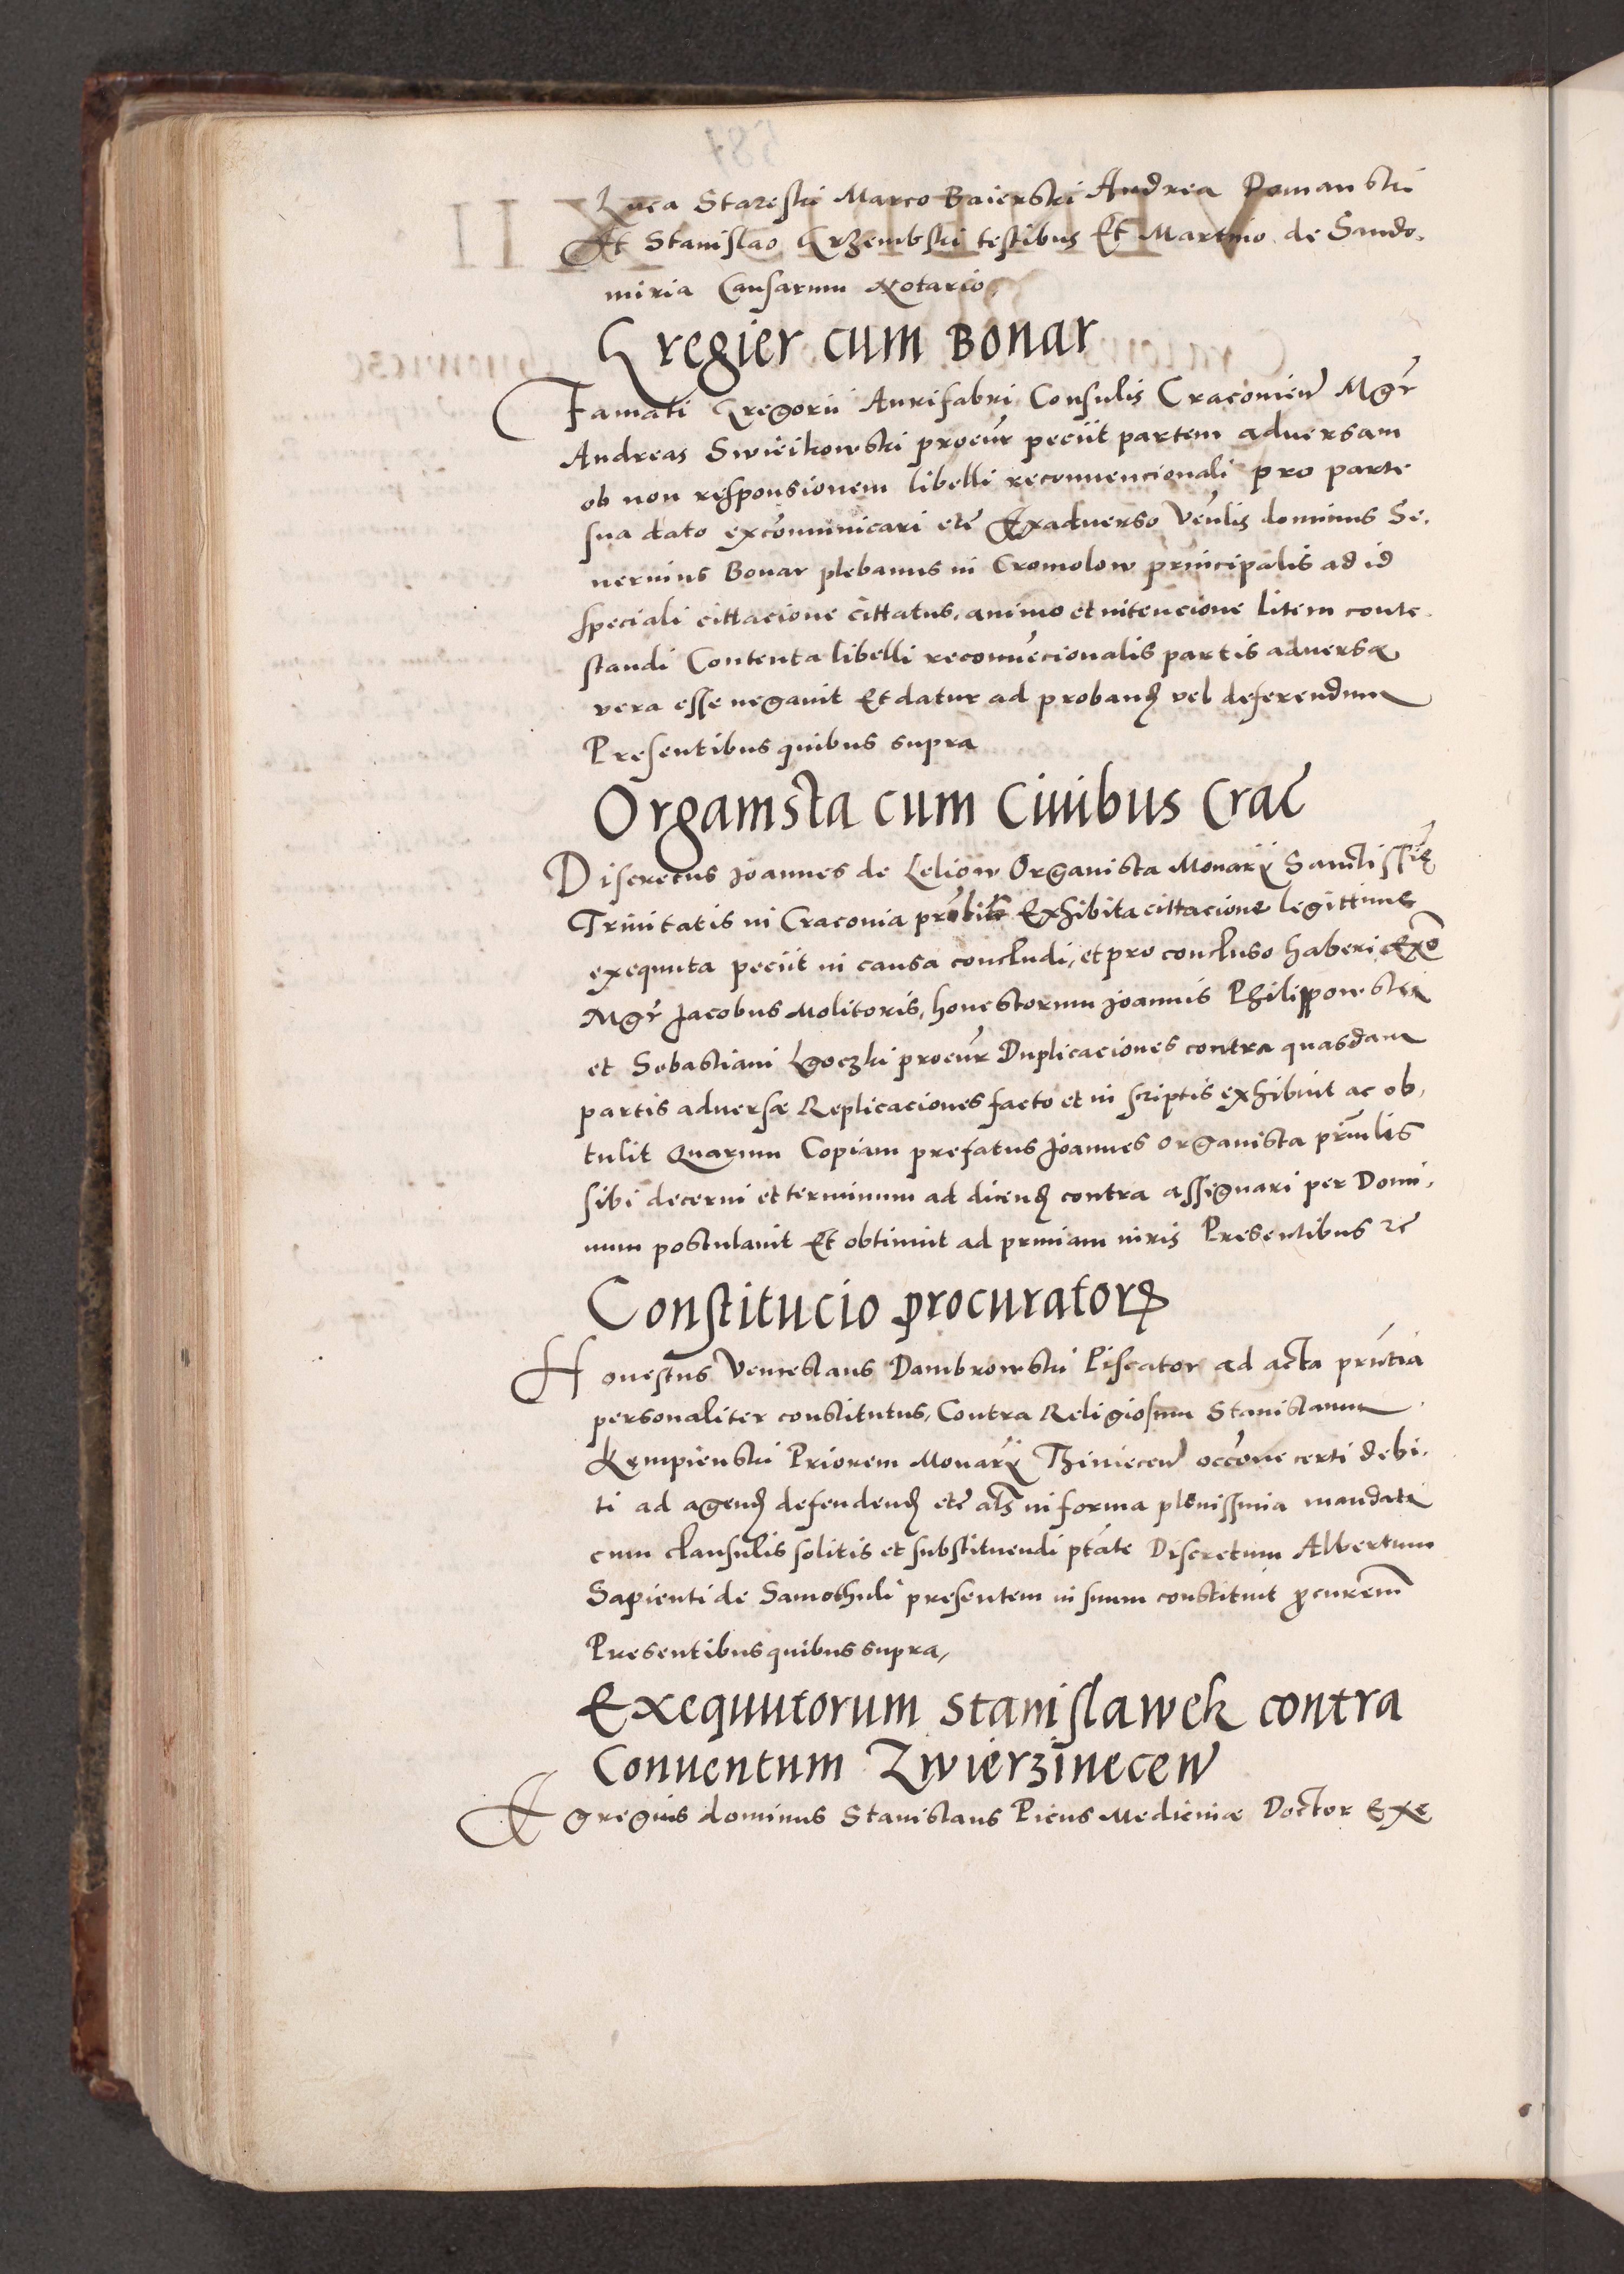 Luca Stareski Marco Baierski Andrea Domanski
Et Stanislao Grzembski testibus Et Martino de Sando,
miria Causarum Notario,
Gregier cum Bonar
Famati Gregorii Aurifabri Consulis Cracovien̄ Mgr̄
Andreas Swieikowski procur̄ peciit partem adversam
ob non responsionem libelli reconvencionali pro parte
sua dato excom̄unicari etc̄ Exadverso Ven̄lis dominus Se,
verinus Bonar plebanus in Cromolow principalis ad id
speciali cittacione cittatus, animo et intencione litem conte,
standi Contenta libelli reconvēcionalis partis adversæ
vera esse negavit Et datur ad proband̄ vel deferendum
Presentibus quibus supra
Organista cum Civibus Crac̄
Discretus Joannes de Leliow Organista Monar̄ii Sanctissi͞e
Trinitatis in Cracovia Exhibita cittacione legittime
exequuta peciit in causa concludi, et pro concluso haberi Exo͞
Mgr̄ Jacobus Molitoris, honestorum Joannis Philippowski
et Sebastiani Lgoczki procur̄ Duplicaciones contra quasdam
partis adversæ Replicaciones facto et in scriptis exhibuit ac ob,
tulit Quarum Copiam prefatus Joannes Organista prin̄lis
sibi decerni et terminum ad dicend̄ contra assignari per Domi,
num postulavit Et obtinuit ad primam iuris Presentibus etc̄
Constitucio procuratorꝝ
Honestus Venceslaus Dambrowski Piscator ad acta prn̄tia
personaliter constitutus, Contra Religiosum Stanislaum
Kempienski Priorem Monar̄ii Thiniecen̄ occo͞ne certi debi,
ti ad agend̄ defendend̄ etc̄ al̄s in forma plenissima mandati
cum clausulis solitis et substituendi ptāte Discretum Albertum
Sapienti de Samothuli presentem in suum constituit ꝓcurem͞
Presentibus quibus supra,
Exequutorum Stanislawek contra
Conventum Zwierzinecen̄
Egregius dominus Stanislaus Picus Medicinæ Doctor Exe